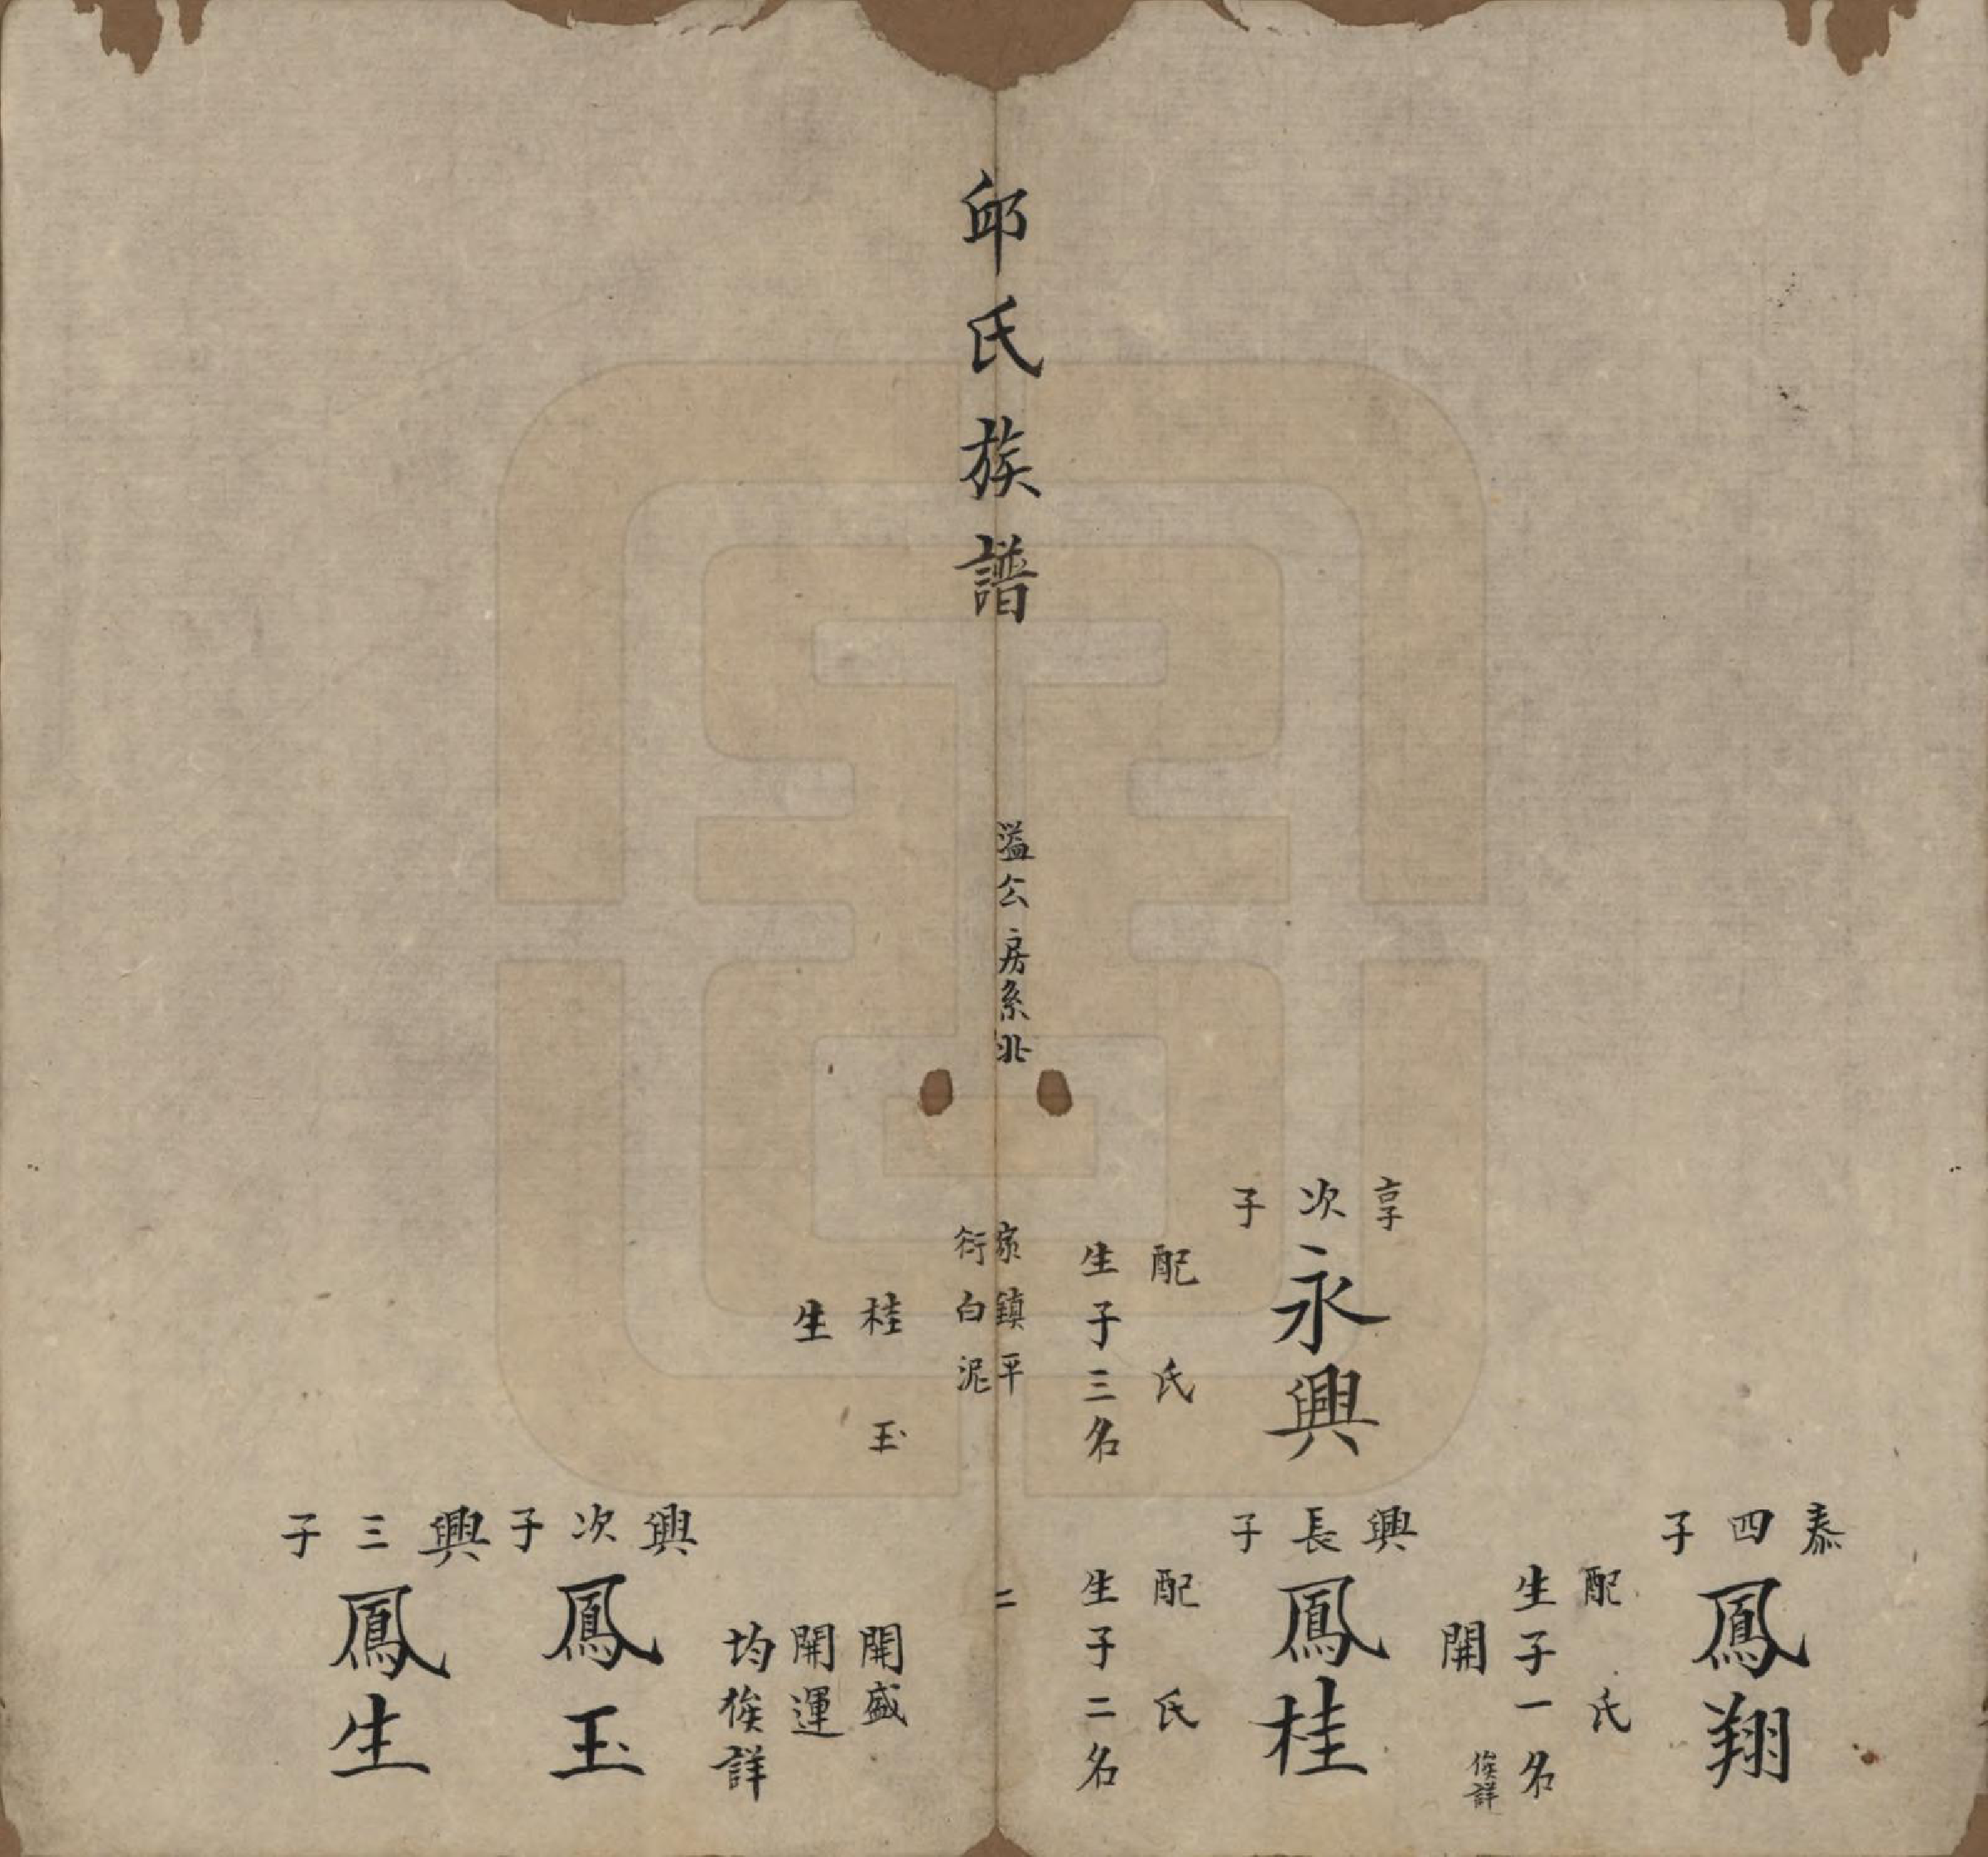 泰四子
鳳翔
配氏
生子一名
開
俟詳
享次子
永興
配氏
生子三名
興長子
鳳桂
配氏
生子二名
邱氏族譜
溢公房系北
家鎮平
衍白泥
二
桂玉
生
開盛
開運
均俟詳
興次子
鳳玉
興三子
鳳生